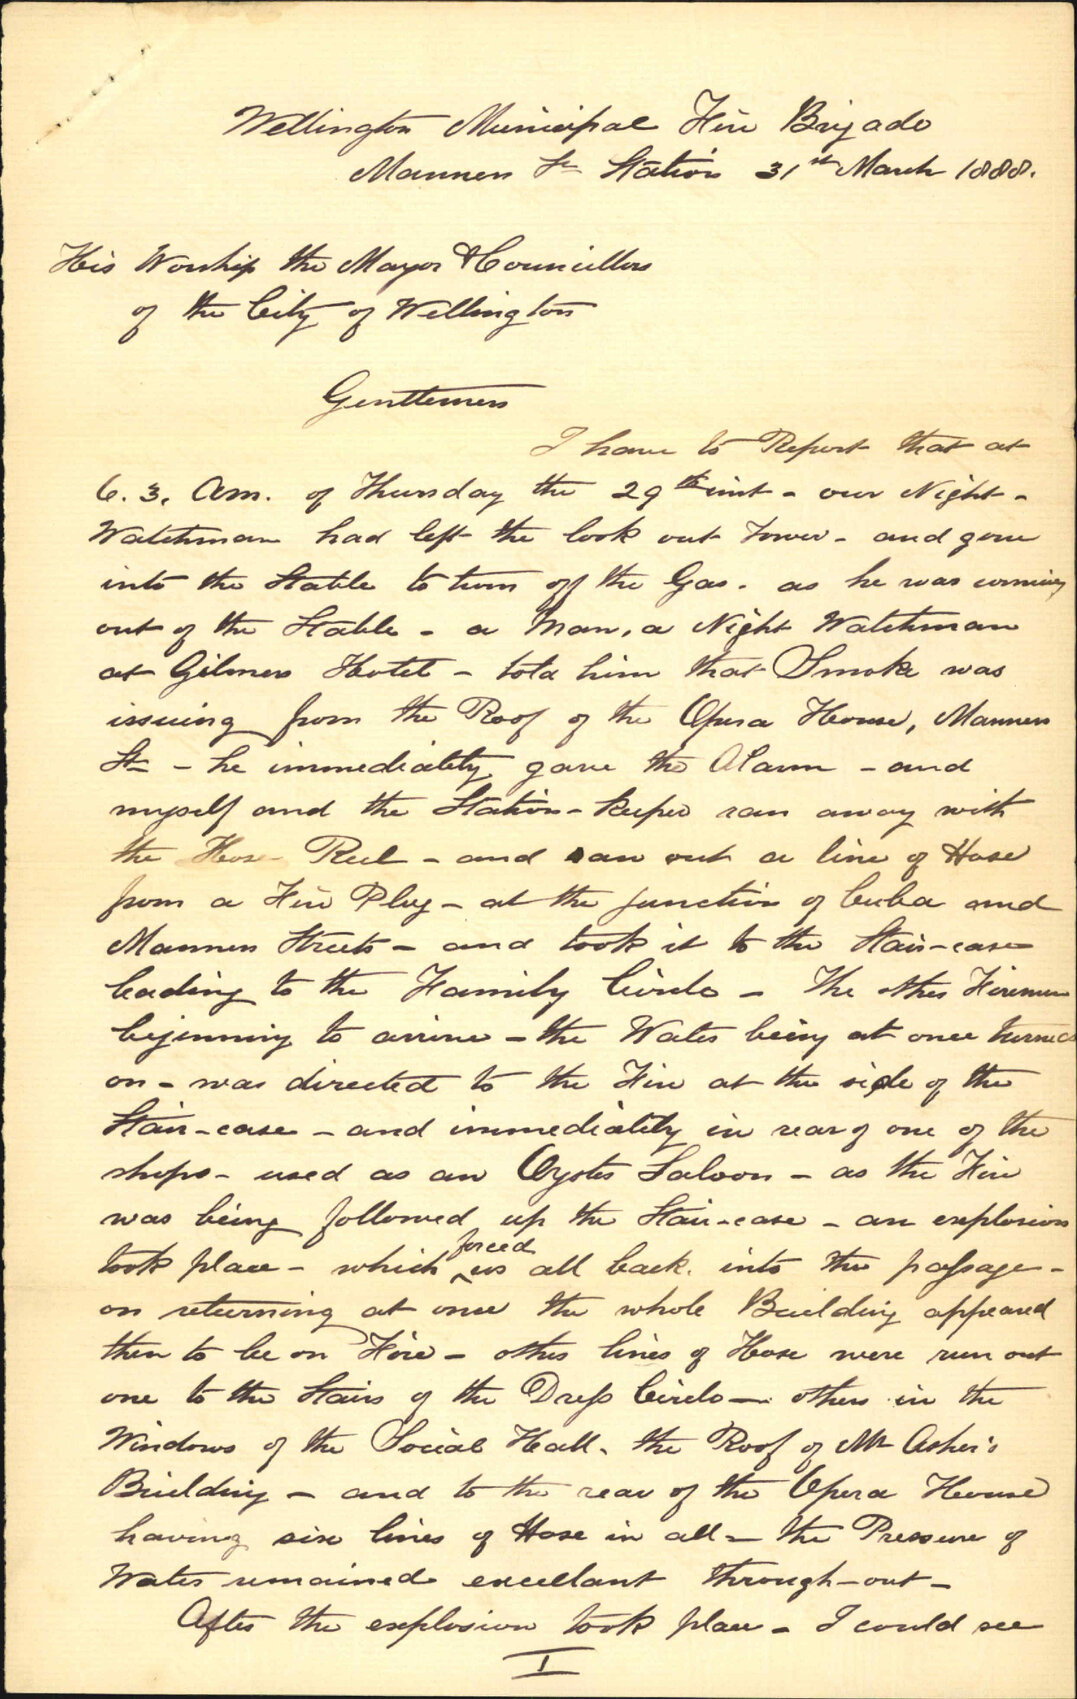 Wellington Municipal Fire Brigade
Manners St Station 31st March 1888.
His Worship the Mayor & Councillors
of the City of Wellington
Gentlemen
I have to Report that at
6. 3. Am. of Thursday the 29th inst - our Night-
Watchman had left the look out Tower - and gone
into the Stable to turn off the Gas. as he was coming
out of the Stable - a Man, a Night Watchman
at Gilmers Hotel - told him that Smoke was
issuing from the Roof of the Opera House, Manners
St - he immediately gave the Alarm - and
myself and the Station-keeper ran away with
the Hose Reel - and ran out a line of Hose
from a Fire Plug - at the junction of Cuba and
Manners Streets - and took it to the Stair-case
leading to the Family Circle - The other Firemen
beginning to arrive - the Water being at once turned
on - was directed to the Fire at the side of the
Stair-case - and immediately in rear of one of the
shops - used as an Oyster Saloon - as the Fire
was being followed up the Stair-case - an explosion
took place - which forced us all back. into the passage -
on returning at once the whole Building appeared
then to be on Fire - other lines of Hose were run out
one to the Stairs of the Dress Circle - others in the
Windows of the Social Hall. the Roof of Mr Asher's
Building - and to the rear of the Opera House
having six lines of Hose in all - the Pressure of
Water remained excellant through-out -
After the explosion took place - I could see
1